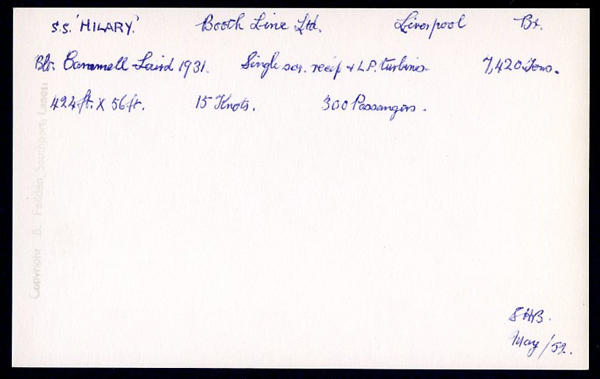 S.S. 'HILARY.' Booth Line Ltd. Liverpool Br.
Blt. Cammell Laird 1931. Single scr. recip + L.P. turbines 7,420 Tons.
424 ft. X 56 ft. 15 Knots. 300 Passengers.
Copyright B. Feilden
May /59.